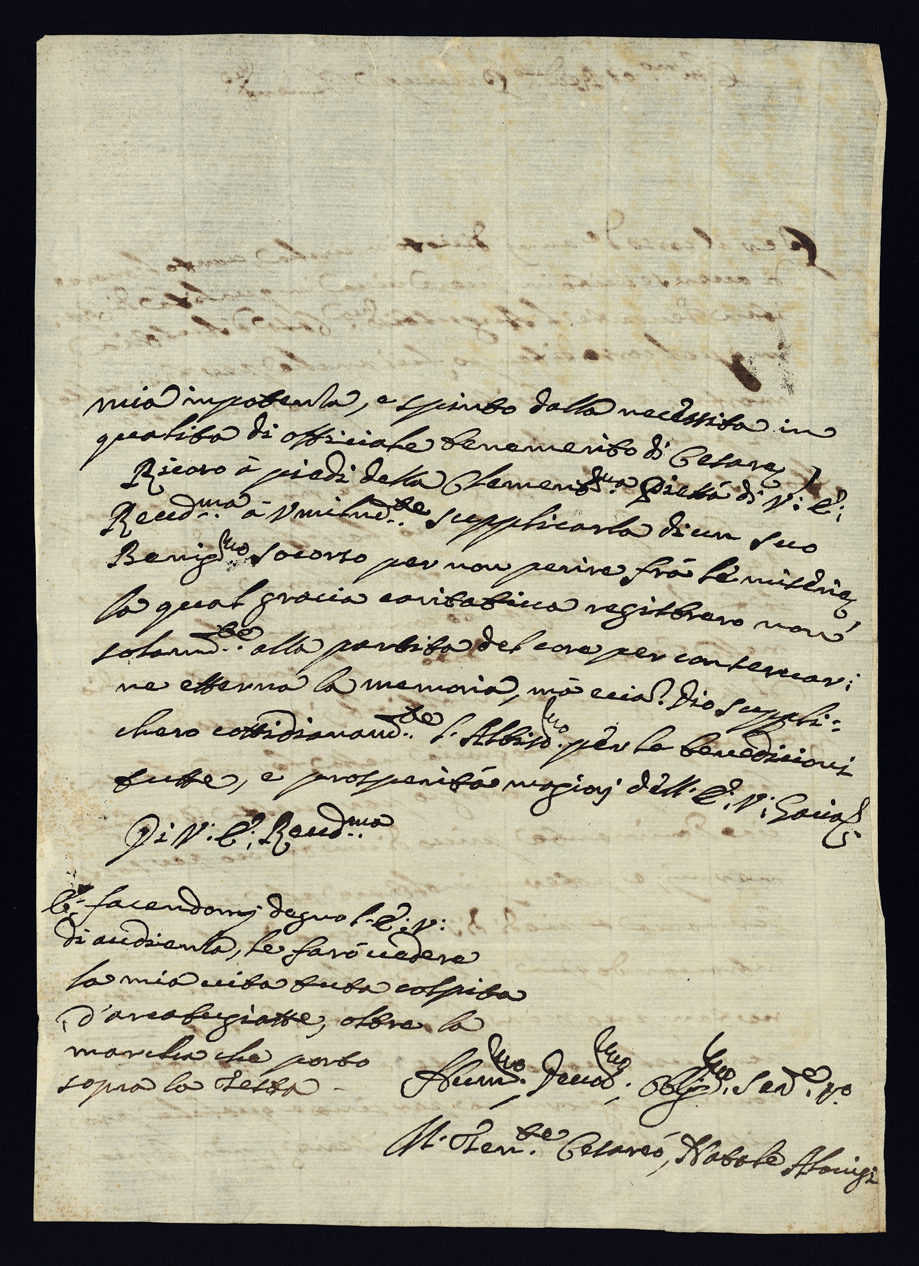 mia impotenza, e spinto dalla necessita in
qualita di officiale benemerito di Cesare
Ricoro á piedi della Clementma Pietá di V: E:
Reudma á Vmilmte supplicarla di un suo
Benigmo socorso per non perire frá le miserie,
la qual gracia caritativa registrero non
solamte alla partita del core per conservar:
ne etterna la memoria, má Dio suppli:
chero cottidianamte l'Altismo per le benedicioni
tutte, e prosperitá magiori dell' E: V: Sacra
Di V: E: Reudma
E facendomi degno l'E: V:
di audienza, le faró vedere
la mia vita tuta colpita
d'arcabugiatte, oltre la
marcha che porto
sopra la Testa -
Hummo Deuomo Obligmo Serd.e vo
Tente Cesareó, Natale Alouigi